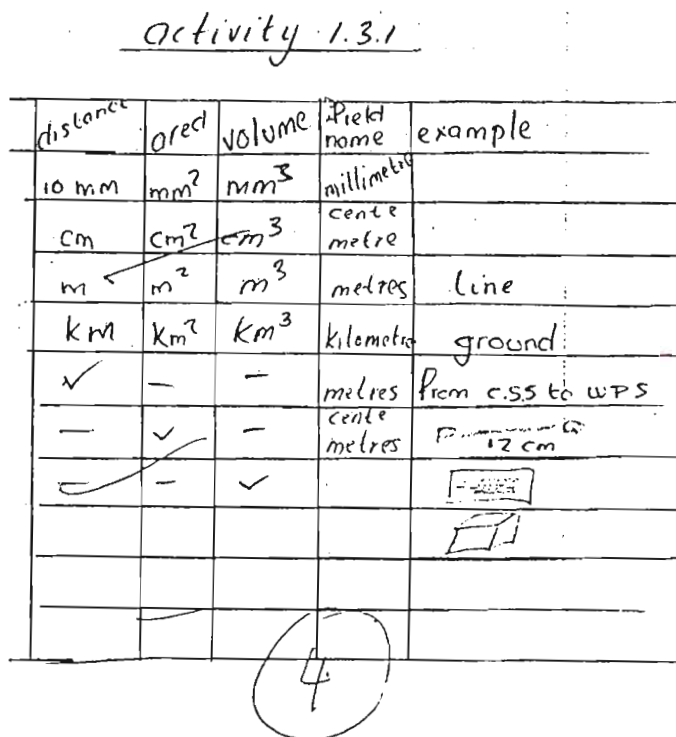 activity 1.3.1
distance area volume Field name example
10 mm mm² mm³ millimetre
cm cm² cm³ cente metre
m m² m³ metres line
km km² km³ kilometre ground
✓ — — metres From C.S.S to WPS
— ✓ — cente metres 12 cm
— — ✓
4